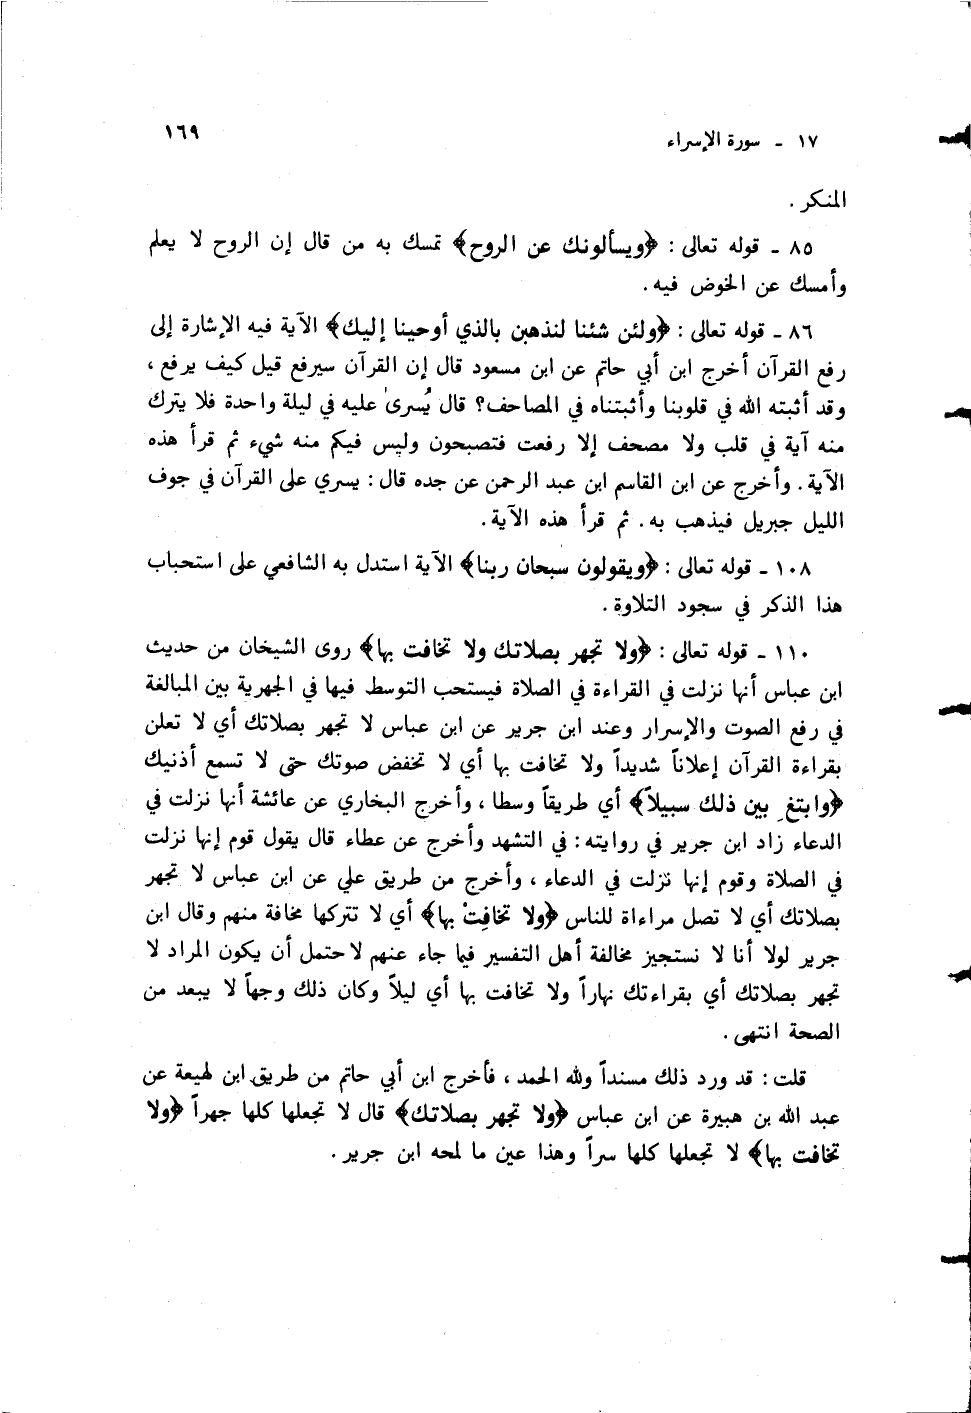 ١٧ ـ سورة الإسراء ١٦٩
المنكر .
٨٥ ـ قوله تعالى : ﴿ويسألونك عن الروح﴾ تمسك به من قال إن الروح لا يعلم
وأمسك عن الخوض فيه .
٨٦ ـ قوله تعالى : ﴿ولئن شئنا لنذهبن بالذي أوحينا إليك﴾ الآية فيه الإشارة إلى
رفع القرآن أخرج ابن أبي حاتم عن ابن مسعود قال إن القرآن سيرفع قيل كيف يرفع ،
وقد أثبته الله في قلوبنا وأثبتناه في المصاحف؟ قال يُسرى عليه في ليلة واحدة فلا يترك
منه آية في قلب ولا مصحف إلا رفعت فتصبحون وليس فيكم منه شيء ثم قرأ هذه
الآية . وأخرج عن ابن القاسم ابن عبد الرحمن عن جده قال : يسري على القرآن في جوف
الليل جبريل فيذهب به . ثم قرأ هذه الآية .
١٠٨ ـ قوله تعالى : ﴿ويقولون سبحان ربنا﴾ الآية استدل به الشافعي على استحباب
هذا الذكر في سجود التلاوة .
١١٠ ـ قوله تعالى : ﴿ولا تجهر بصلاتك ولا تخافت بها﴾ روى الشيخان من حديث
ابن عباس أنها نزلت في القراءة في الصلاة فيستحب التوسط فيها في الجهرية بين المبالغة
في رفع الصوت والإسرار وعند ابن جرير عن ابن عباس لا تجهر بصلاتك أي لا تعلن
بقراءة القرآن إعلاناً شديداً ولا تخافت بها أي لا تخفض صوتك حتى لا تسمع أذنيك
﴿وابتغ بين ذلك سبيلاً﴾ أي طريقاً وسطا ، وأخرج البخاري عن عائشة أنها نزلت في
الدعاء زاد ابن جرير في روايته : في التشهد وأخرج عن عطاء قال يقول قوم إنها نزلت
في الصلاة وقوم إنها نزلت في الدعاء ، وأخرج من طريق علي عن ابن عباس لا تجهر
بصلاتك أي لا تصل مراءاة للناس ﴿ولا تخافِتْ بها﴾ أي لا تتركها مخافة منهم وقال ابن
جرير لولا أنا لا نستجيز مخالفة أهل التفسير فيما جاء عنهم لاحتمل أن يكون المراد لا
تجهر بصلاتك أي بقراءتك نهاراً ولا تخافت بها أي ليلاً وكان ذلك وجهاً لا يبعد من
الصحة انتهى .
قلت : قد ورد ذلك مسنداً ولله الحمد ، فأخرج ابن أبي حاتم من طريق ابن لهيعة عن
عبد الله بن هبيرة عن ابن عباس ﴿ولا تجهر بصلاتك﴾ قال لا تجعلها كلها جهراً ﴿ولا
تخافت بها﴾ لا تجعلها كلها سراً وهذا عين ما لمحه ابن جرير .